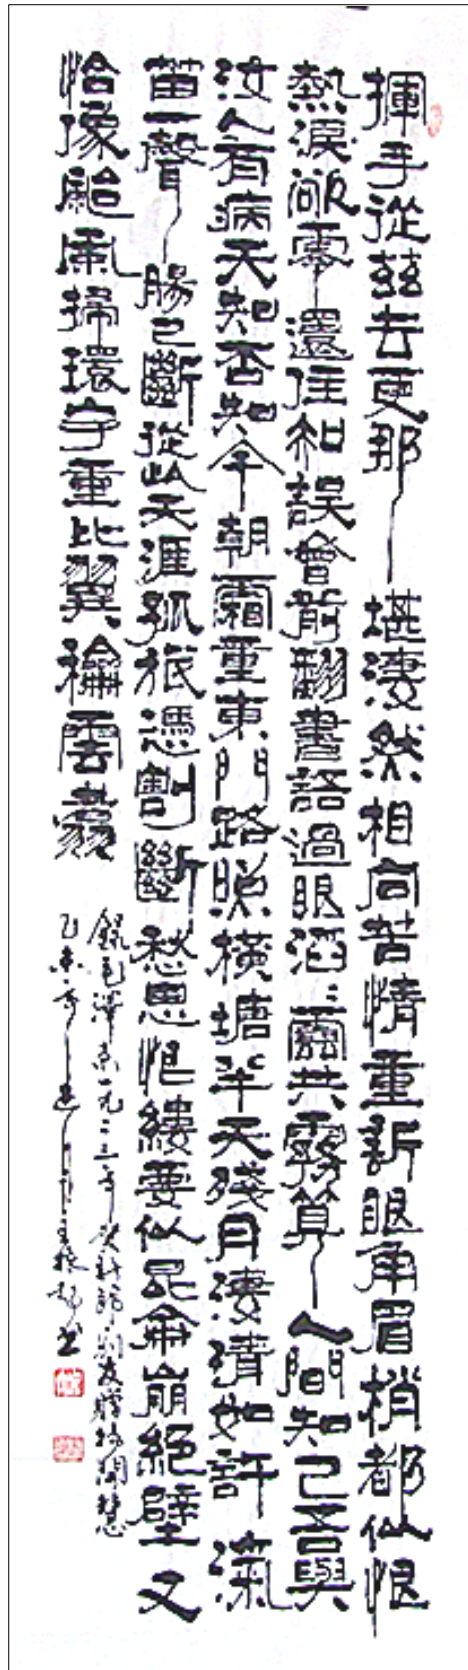 揮手從茲去更那堪淒然相向苦情重訴眼角眉梢都似恨
熱淚欲零還住知誤會前翻書語過眼滔〻雲共霧算人間知己吾與
汝人有病天知否知今朝霜重東門路照橫塘半天殘月淒清如許汽
笛一聲腸已斷從此天涯孤旅憑割斷愁思恨縷要似昆侖崩絕壁又
恰像颱風掃環宇重比翼龢雲翥
錄毛澤東一九二三年賀新郎別友贈楊開慧
乙未年 書